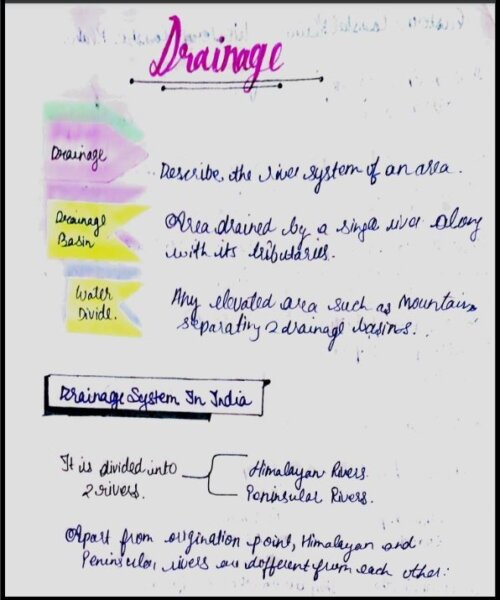 Drainage
Drainage
Describe the river system of an area.
Drainage
Basin
Area drained by a single river along
with its tributaries.
Water
Divide.
Any elevated area such as Mountain
separating 2 drainage basins.
Drainage System In India
It is divided into
2 rivers.
Himalayan Rivers.
Peninsular Rivers.
Apart from origination point, Himalayan and
Peninsular rivers are different from each other: